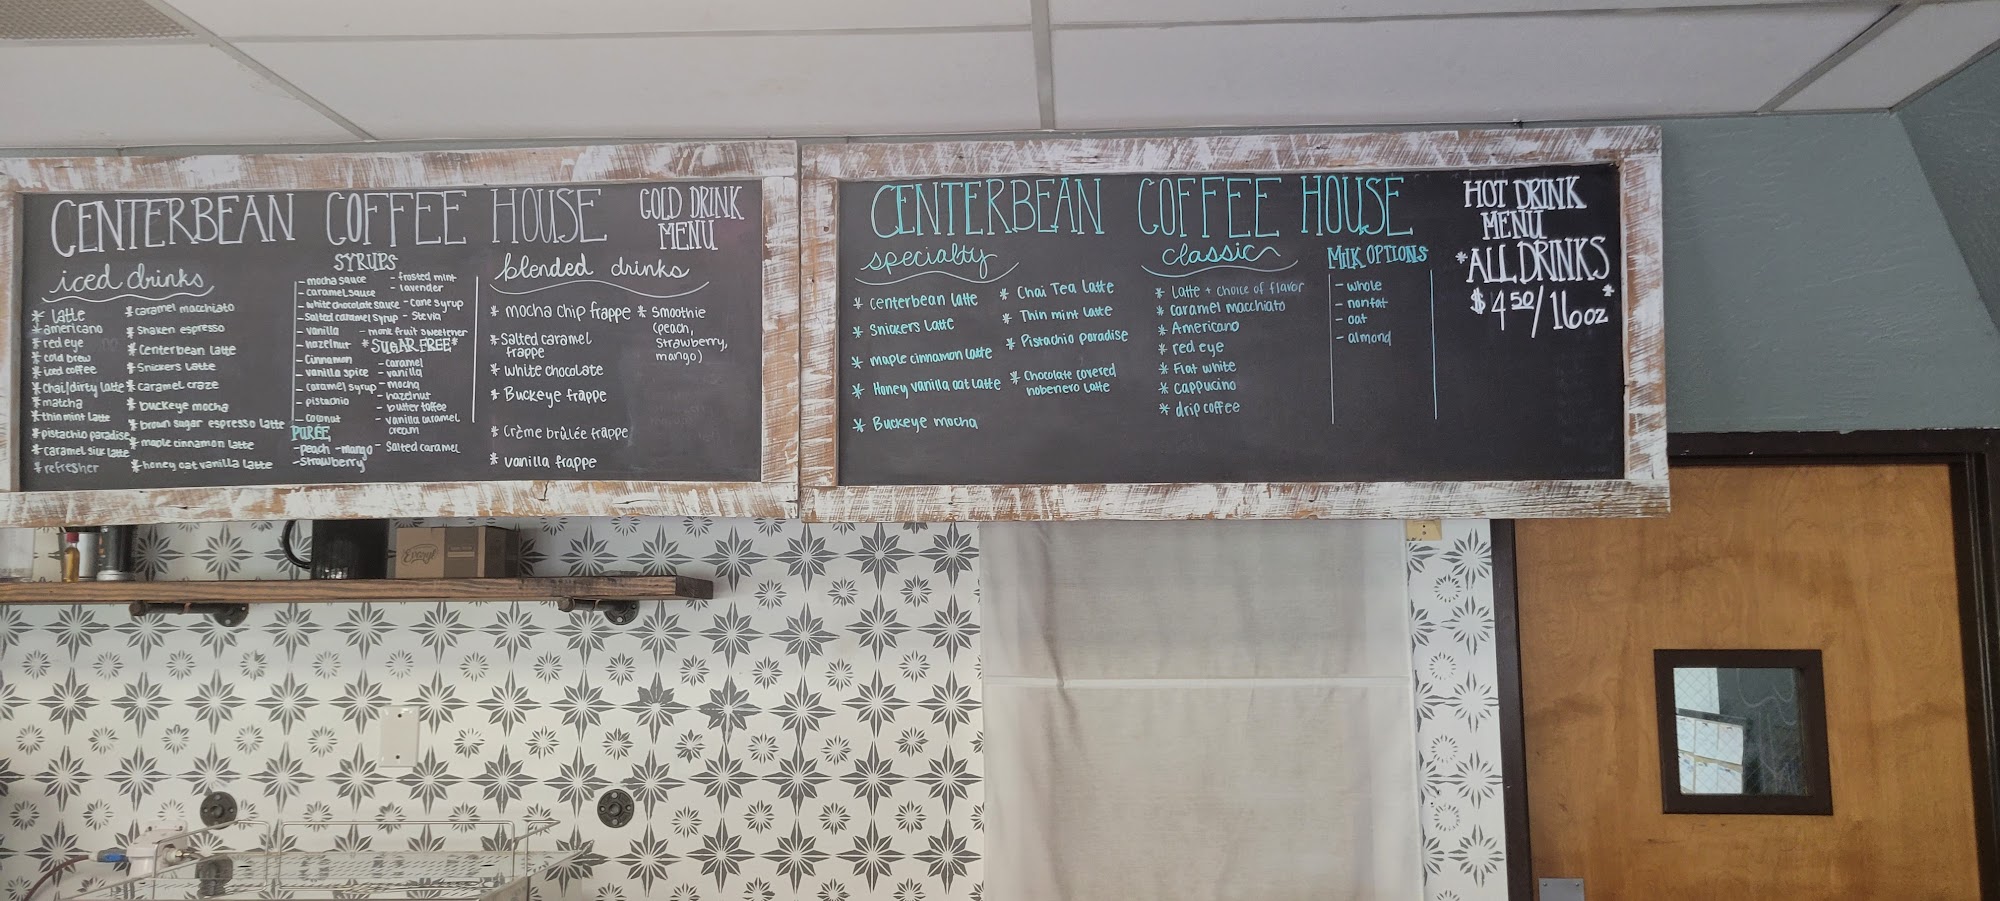 CENTERBEAN COFFEE HOUSE
COLD DRINK
MENU
iced drinks
* Latte
* americano
* red eye
* cold brew
* iced coffee
* Chai/dirty latte
* matcha
* thin mint latte
* pistachio paradise
* caramel silk latte
* refresher
* caramel macchiato
* Shaken espresso
* Centerbean latte
* Snickers Latte
* caramel craze
* buckeye mocha
* brown sugar espresso latte
* maple cinnamon latte
* honey oat vanilla latte
SYRUPS
- mocha sauce
- caramel sauce
- white chocolate sauce
- Salted caramel syrup
- vanilla
- hazelnut
- Cinnamon
- vanilla spice
- caramel syrup
- pistachio
- coconut
- frosted mint
- lavender
- Cane syrup
- Stevia
- monk fruit sweetener
*SUGAR FREE*
- caramel
- vanilla
- mocha
- hazelnut
- butter toffee
- vanilla caramel
cream
- Salted caramel
PURÉE
- peach - mango
- strawberry
blended drinks
* mocha chip frappe
* Salted caramel
frappe
* white chocolate
* Buckeye frappe
* Crème brûlée frappe
* vanilla frappe
* Smoothie
(peach,
strawberry,
mango)
CENTERBEAN COFFEE HOUSE
HOT DRINK
MENU
*ALL DRINKS*
$4.50/16oz
specialty
* centerbean latte
* Snickers Latte
* maple cinnamon latte
* Honey vanilla oat latte
* Buckeye mocha
* Chai Tea Latte
* Thin mint Latte
* Pistachio paradise
* Chocolate covered
nobenero latte
classic
* Latte + choice of flavor
* Caramel macchiato
* Americano
* red eye
* Flat white
* cappucino
* drip coffee
MILK OPTIONS
- whole
- nonfat
- oat
- almond